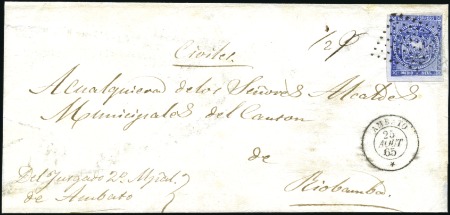 Civiles.
1/2
A cualquiera de los Señores Alcaldes
Municipales del Canton
de
Riobamba.
Del Juzgado 2º Mpal.
de Ambato
MEDIO REAL
AMBATO
25
AOUT
65